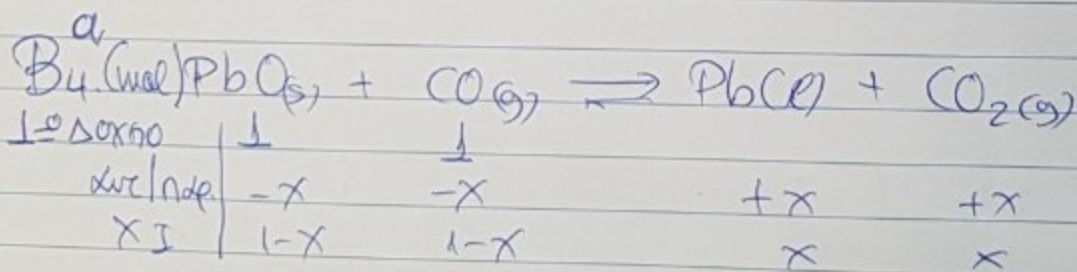 α
Β4. (mol) PbO(s) + CO(g) ⇌ Pb(l) + CO2(g)
1ο Δοχείο 1 1
αντ/παρ. -x -x +x +x
ΧΙ 1-x 1-x x x